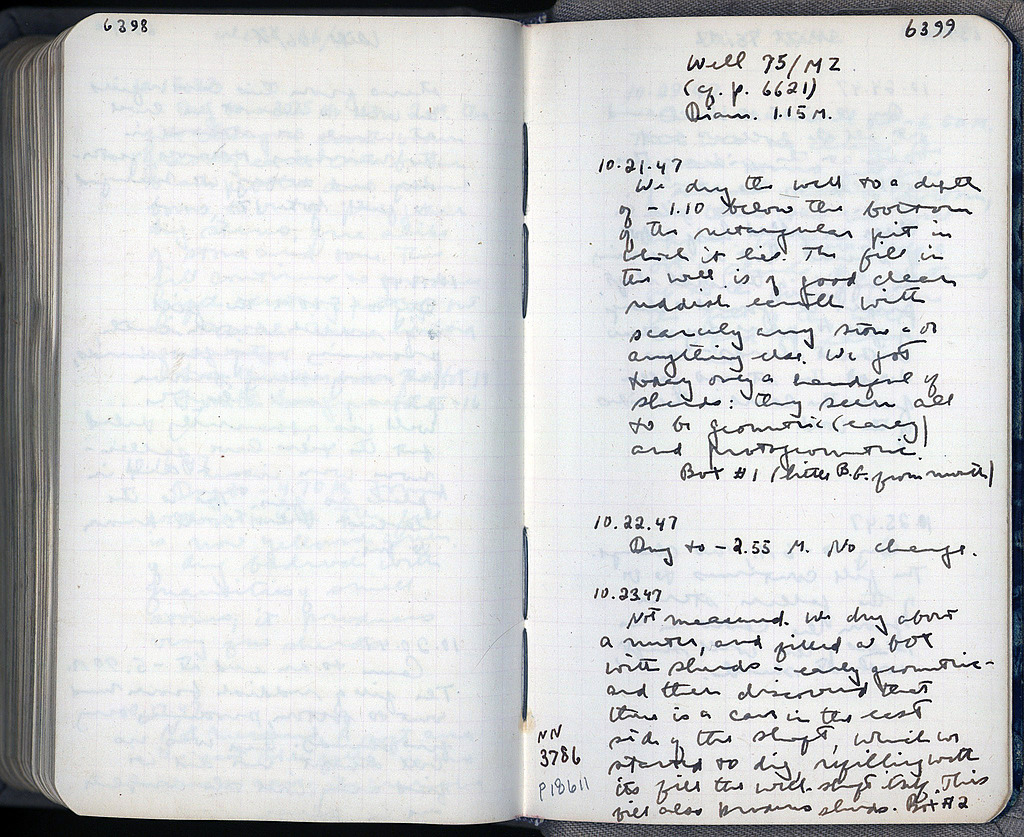 6398
6399
Well 75/MZ
(cf. p. 6621)
Diam. 1.15 M.
10.21.47
We dug the well to a depth
of -1.10 below the bottom
of the rectangular pit in
which it lies. The fill in
the well is of good clean
reddish earth with
scarcely any stone or
anything else. We got
today only a handful of
sherds: they seem all
to be geometric (early)
and protogeometric.
Box #1 (little B.G. from mouth)
10.22.47
Dug to -2.55 M. No change.
10.23.47
Not measured. We dug about
a meter, and filled a box
with sherds - early geometric -
and then discovered that
there is a cave in the east
side of the shaft, which we
started to dig, refilling with
its fill the well-shaft itself. This
fill also produces sherds. Box #2
NN
3786
P18611